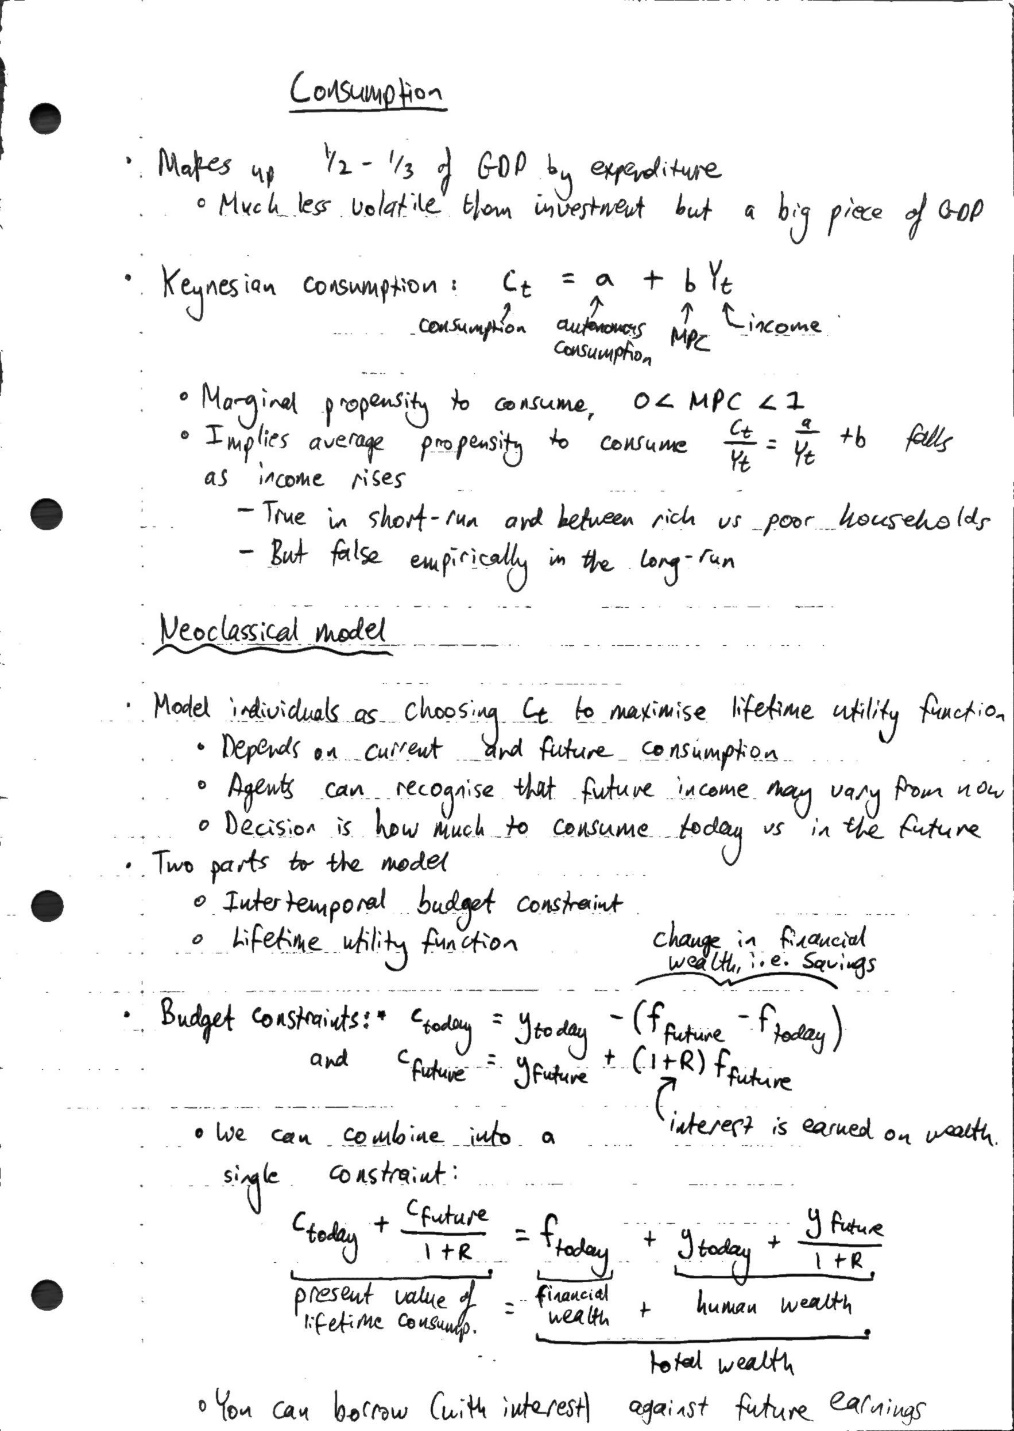 Consumption
• Makes up 1/2 - 1/3 of GDP by expenditure
◦ Much less volatile than investment but a big piece of GDP
• Keynesian consumption: Ct = a + b Yt
consumption autonomous consumption MPC income
◦ Marginal propensity to consume, 0 < MPC < 1
◦ Implies average propensity to consume Ct/Yt = a/Yt + b falls
as income rises
- True in short-run and between rich vs poor households
- But false empirically in the long-run
Neoclassical model
• Model individuals as choosing Ct to maximise lifetime utility function
• Depends on current and future consumption
◦ Agents can recognise that future income may vary from now
◦ Decision is how much to consume today vs in the future
• Two parts to the model
◦ Intertemporal budget constraint
◦ Lifetime utility function
change in financial
wealth, i.e. savings
• Budget constraints: • c today = y today - (f future - f today)
and c future = y future + (1+R) f future
interest is earned on wealth.
• We can combine into a
single constraint:
c today + c future / 1+R = f today + y today + y future / 1+R
present value of lifetime consump. = financial wealth + human wealth
total wealth
◦ You can borrow (with interest) against future earnings